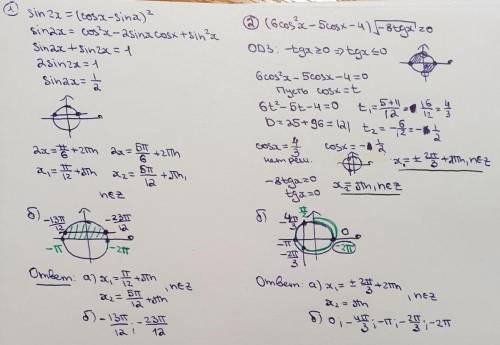 ①
sin2x = (cosx - sinx)²
sin2x = cos²x - 2sinx cosx + sin²x
sin2x + sin2x = 1
2sin2x = 1
sin2x = 1/2
2x = π/6 + 2πn   2x = 5π/6 + 2πn
x₁ = π/12 + πn   x₂ = 5π/12 + πn,
n∈Z
б)
-13π/12   -23π/12
-π   -2π
Ответ: а) x₁ = π/12 + πn
x₂ = 5π/12 + πn , n∈Z
б) -13π/12 ; -23π/12
② (6cos²x - 5cosx - 4)√-8tgx = 0
ОДЗ: -tgx ≥ 0 => tgx ≤ 0
6cos²x - 5cosx - 4 = 0
Пусть cosx = t
6t² - 5t - 4 = 0   t₁ = (5+11)/12 = 16/12 = 4/3
D = 25 + 96 = 121   t₂ = -6/12 = -1/2
cosx = 4/3   cosx = -1/2
нет реш.   x₁ = ± 2π/3 + 2πn, n∈Z
-8tgx = 0
tgx = 0   x = πn, n∈Z
б)
-4π/3   π/2
-π   0
-2π/3   -2π
Ответ: а) x₁ = ± 2π/3 + 2πn
x₂ = πn , n∈Z
б) 0; -4π/3; -π; -2π/3; -2π